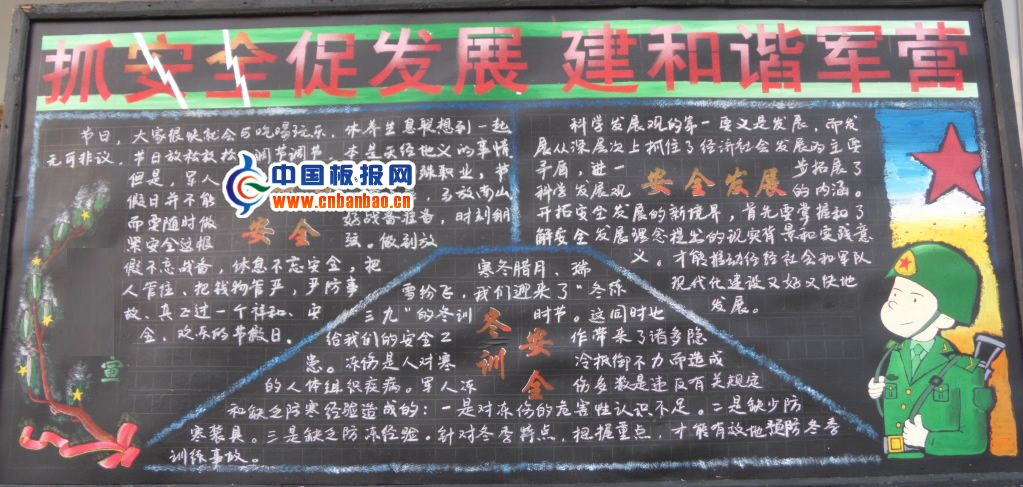 抓安全促发展 建和谐军营
节日，大家很快就会与吃喝玩乐、休养生息联想到一起
无可非议，节日放松放松，调节调节，本是天经地义的事情
但是，军人
职业，节
假日并不能
放南山
而要随时做
好战备准备，时刻绷
紧安全这根
弦。做到放
安全
假不忘战备，休息不忘安全，把
人管住、把钱物管严，严防事
故、真正过一个祥和、安
全、欢乐的节假日。
中国板报网
www.cnbanbao.cn
科学发展观的第一要义是发展，而发
展从深层次上抓住了经济社会发展的主要
矛盾，进一步拓展了
科学发展观的内涵。
安全发展
开拓安全发展的新境界，首先要掌握和了
解安全发展理念提出的现实背景和实践意
义。才能推动传经社会和军队
现代化建设又好又快地
发展。
寒冬腊月、瑞
雪纷飞，我们迎来了“冬练
三九”的冬训时节。这同时也
给我们的安全工作带来了诸多隐
患。冻伤是人对寒冷抵御不力而造成
的人体组织疾病。军人冻伤多数是违反有关规定
冬训
安全
和缺乏防寒经验造成的：一是对冻伤的危害性认识不足。二是缺少防
寒装具。三是缺乏防冻经验。针对冬季特点，把握重点，才能有效地预防冬季
训练事故。
宣